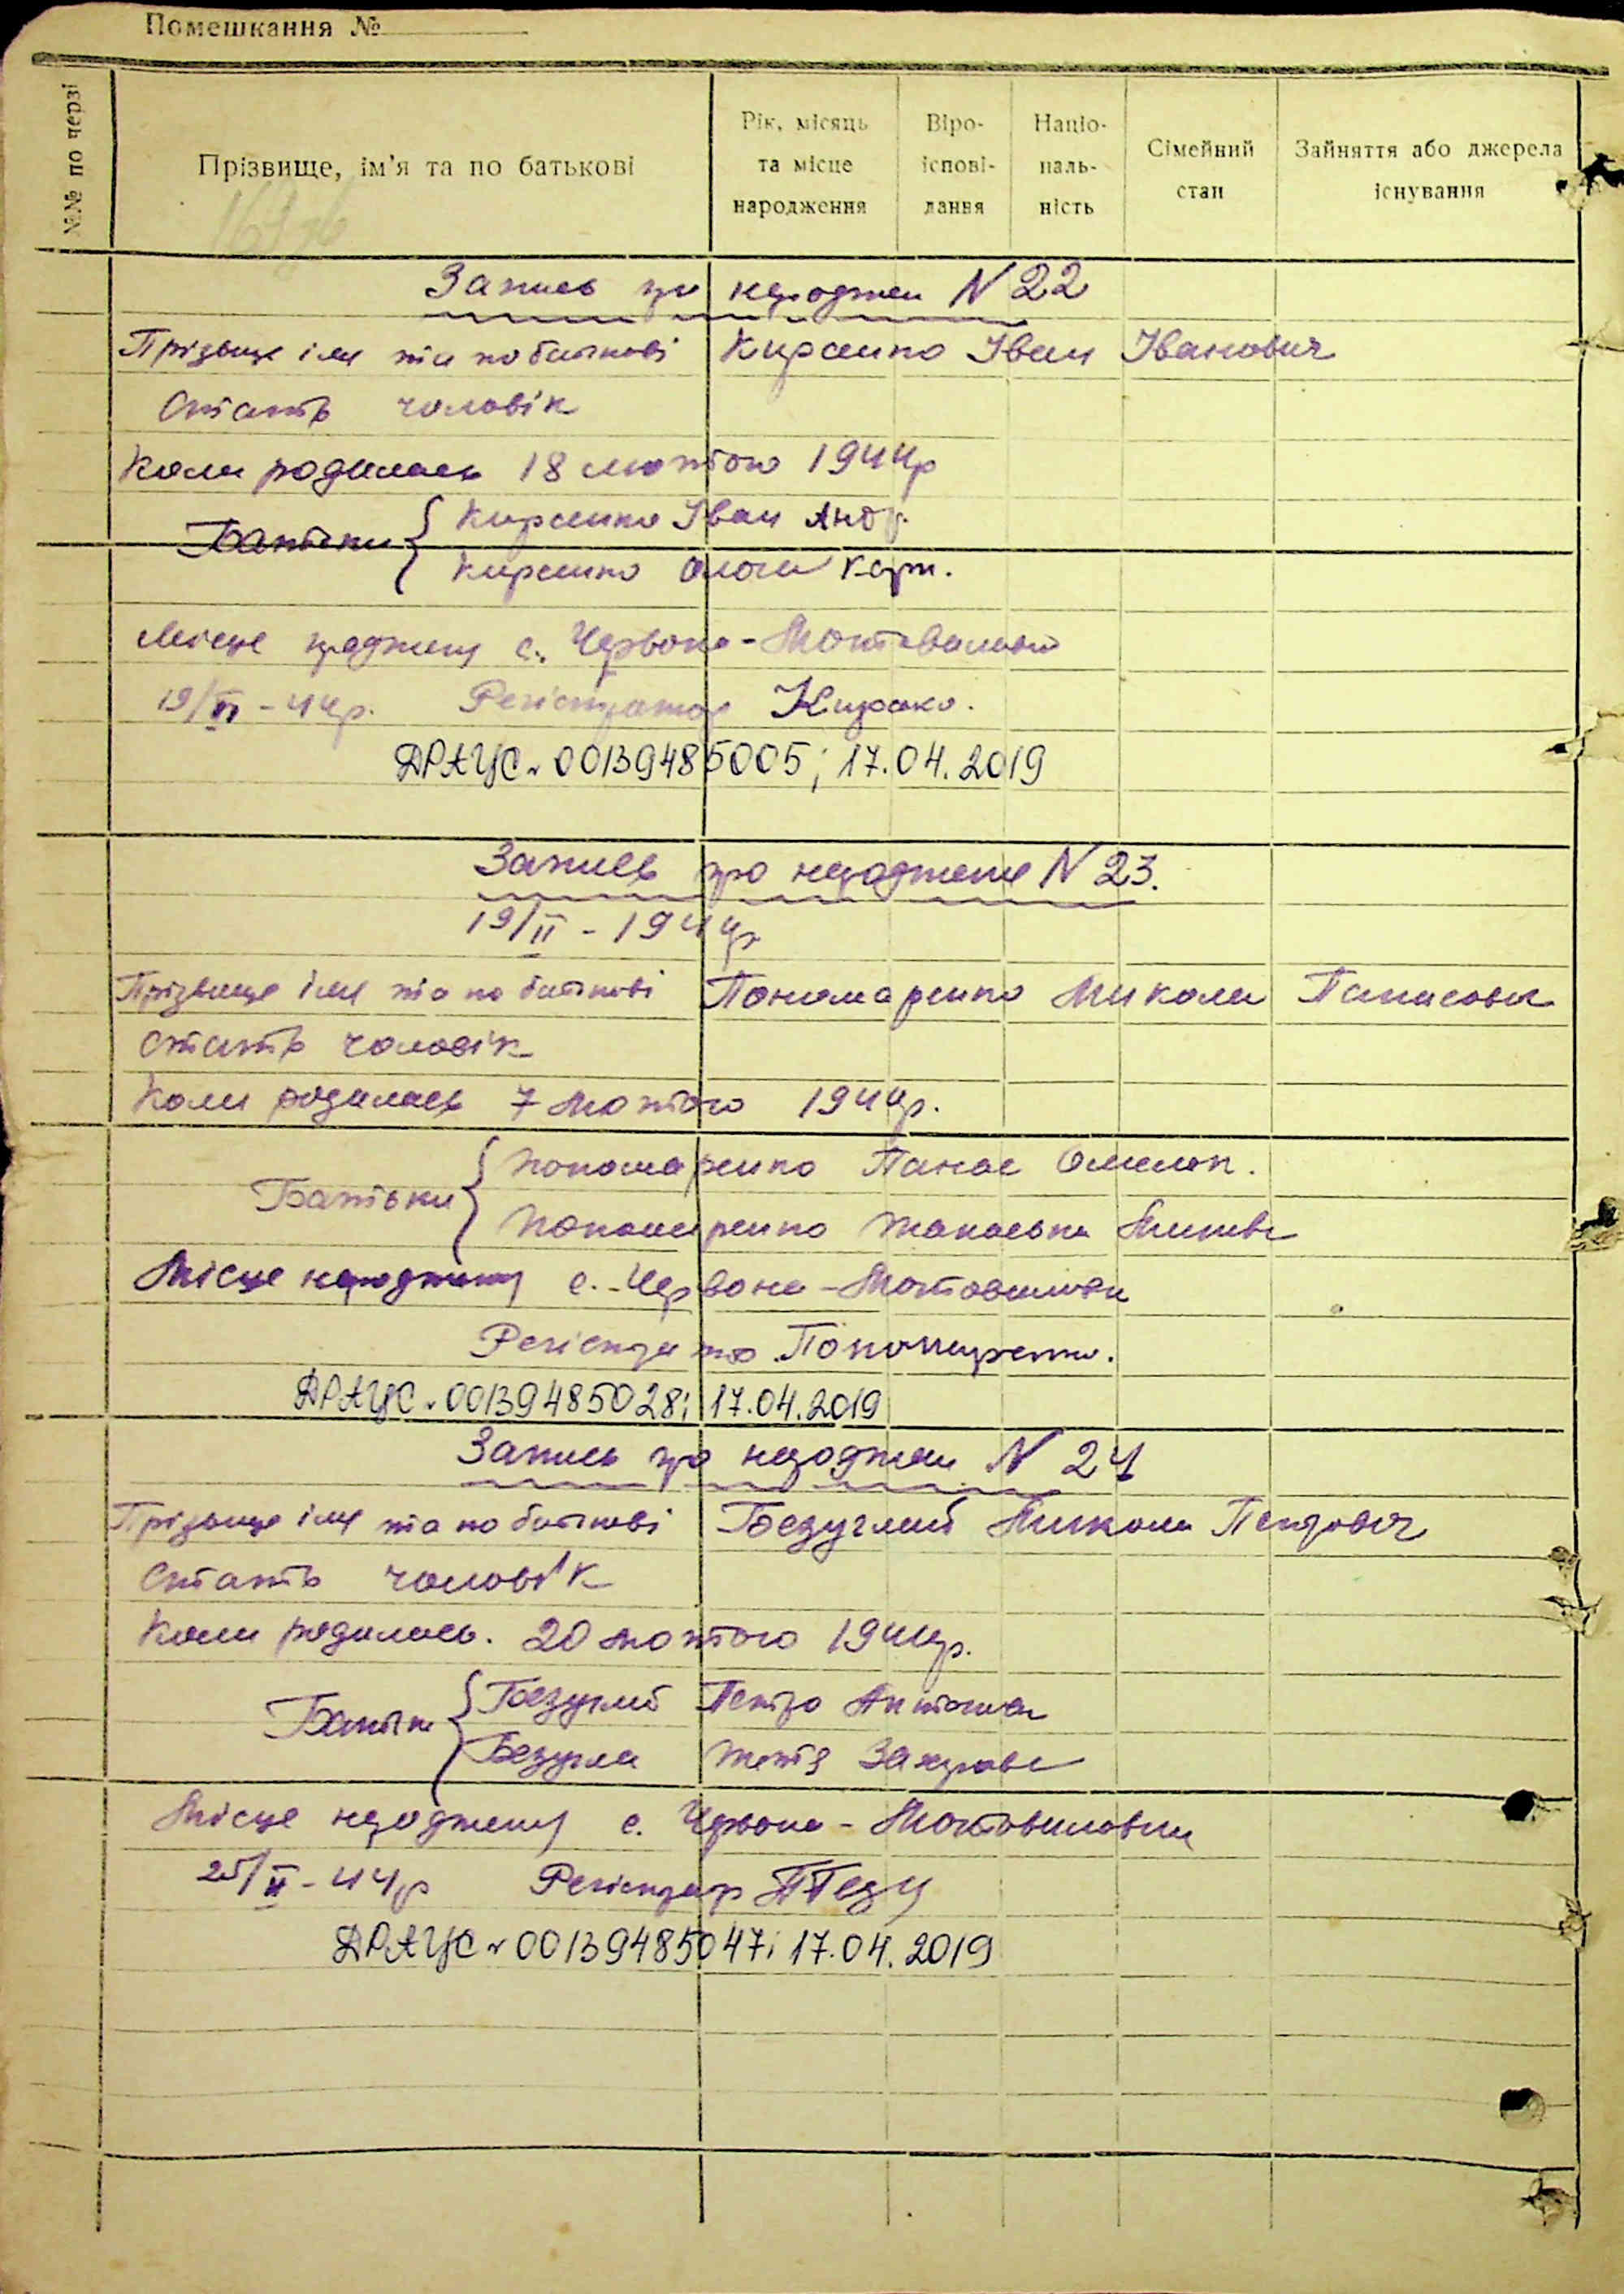 Помешкання №
№№ по черзі
Прізвище, ім'я та по батькові
Рік, місяць та місце народження
Віро-іспові-дання
Націо-наль-ність
Сімейний стан
Зайняття або джерела існування
Запись про народжен N 22
Прізвище імя та по батькові Кирєенко Іван Іванович
Стать чоловік
Коли родилась 18 лютого 1944р
Батьки { Кирєенко Іван Андр.
Кирєенко Карп.
Місце с. Червона-Мотовиловка
19/II - 44р. Регістратор
ДРАЦС 00139485005; 17.04.2019
Запись про народжене N 23.
19/II - 1944р
Прізвище імя та по батькові Пономаренко Микола Панасови
Стать чоловік
Коли родилась 7 лютого 1944р.
Батьки { Пономаренко Панас Омелян.
Пономаренко
Місце народженя с. Червона-Мотовиловка
Пономаренко.
ДРАЦС 00139485028; 17.04.2019
Запись про народжен N 24
Прізвище імя та по батькові Безуглий Микола Петрович
Стать чоловік
Коли родилась. 20 лютого 1944р.
Батьки { Безуглий Петро Антонов
Безугла Захаровн
Місце народженя с. Червона-Мотовиловка
25/II - 44р
ДРАЦС 00139485047; 17.04.2019